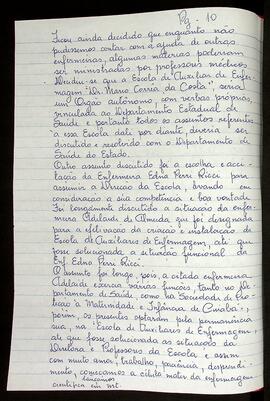 Pg - 10
Ficou ainda decidido que enquanto não
pudéssemos contar com a ajuda de outras
enfermeiras, algumas matérias poderiam
ser ministradas por professores médicos
Decidiu-se que a Escola de Auxiliar de Enfer-
magem "Dr. Mario Correa da Costa", seria
um Orgão autônomo, com verbas próprias
vinculada ao Departamento Estadual de
Saúde e portanto todos os assuntos referentes
a essa Escola dali por diante, deveria ser
discutido e resolvido com o Departamento de
Saúde do Estado.
Outro assunto discutido foi a escolha e acei-
tação da Enfermeira Edna Perri Ricci para
assumir a Direção da Escola, levando em
consideração a sua competência e boa vontade
Foi longamente discutido a situação da enfer-
meira Adelaide de Almeida que foi designada
para a efetivação da criação e instalação da
Escola de Auxiliares de Enfermagem, até que
fosse solucionada a situação funcional da
Enf. Edna Perri Ricci
O assunto foi longo, pois, a citada enfermeira
Adelaide exercia varias funções, tanto no De-
partamento de Saúde, como na Sociedade de Pro-
teção a Maternidade e Infância de Cuiabá;
porém, os presentes optaram pela permanência
sua, na Escola de Auxiliares de Enfermagem,
até que fosse solucionada as situação da
Diretora e Professora da Escola e assim
com muito amor, trabalho, paciência, desprendi-
mento, começamos a célula mater da enfermagem
científica em MT.